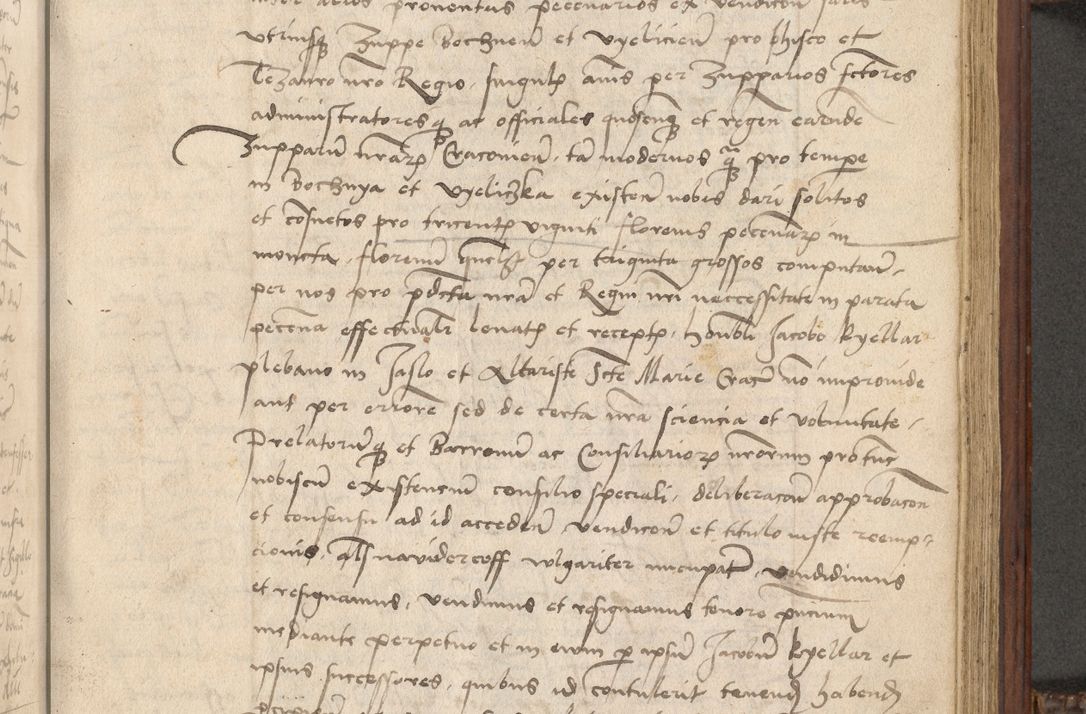 proventus peccuniarios ex vendicioñ salis
utriusq₃ Zuppe Bochneñ et Vyelicieñ pro phisco et
Tezauro nr̃o Regio, singul̃ annis per Zupparios fctores
administratoresq₃ ac officiales quoscunq₃ et regeñ earũde
Zupparũ nr̃arꝝ Cracovieñ, tã modernos q̃₃ pro tempe
in Bochnya et Vyeliczka existeñ nobis dari solitos
et cõsuetos pro tricentꝭ viginti florenis peccuniarꝝ in
moneta, florenũ quẽlꝫ per triginta grossos computañ,
per nos pro p̃dcta nr̃a et Regni nr̃i neccessitate in parata
peccunia effectualr̃ levatꝭ et receptꝭ, honorabli Jacobo Kyellar
plebano in Jaslo et Altariste Scte Marie Crac̃ nõ improvide
aut per errore sed de certa nr̃a sciencia et voluntate,
Prelatorũq₃ et Barronũ ac Consiliariorꝝ nr̃orum pro tũc
nobiscũ existenciũ consilio speciali, deliberacioñ approbacioñ
et consensu ad id accedeñ, vendicioñ et titulo iuste reemp-
cionis, als na viderkoff vulgariter nuncupat̃, vendidimus
et resignavimus, vendimus et resignamus tenore pñcium
mediante perpetuo et in evum p ipsũ Jacobũ Kyellar et
ipsius successores, quibus id contulerit tenenđ habenđ